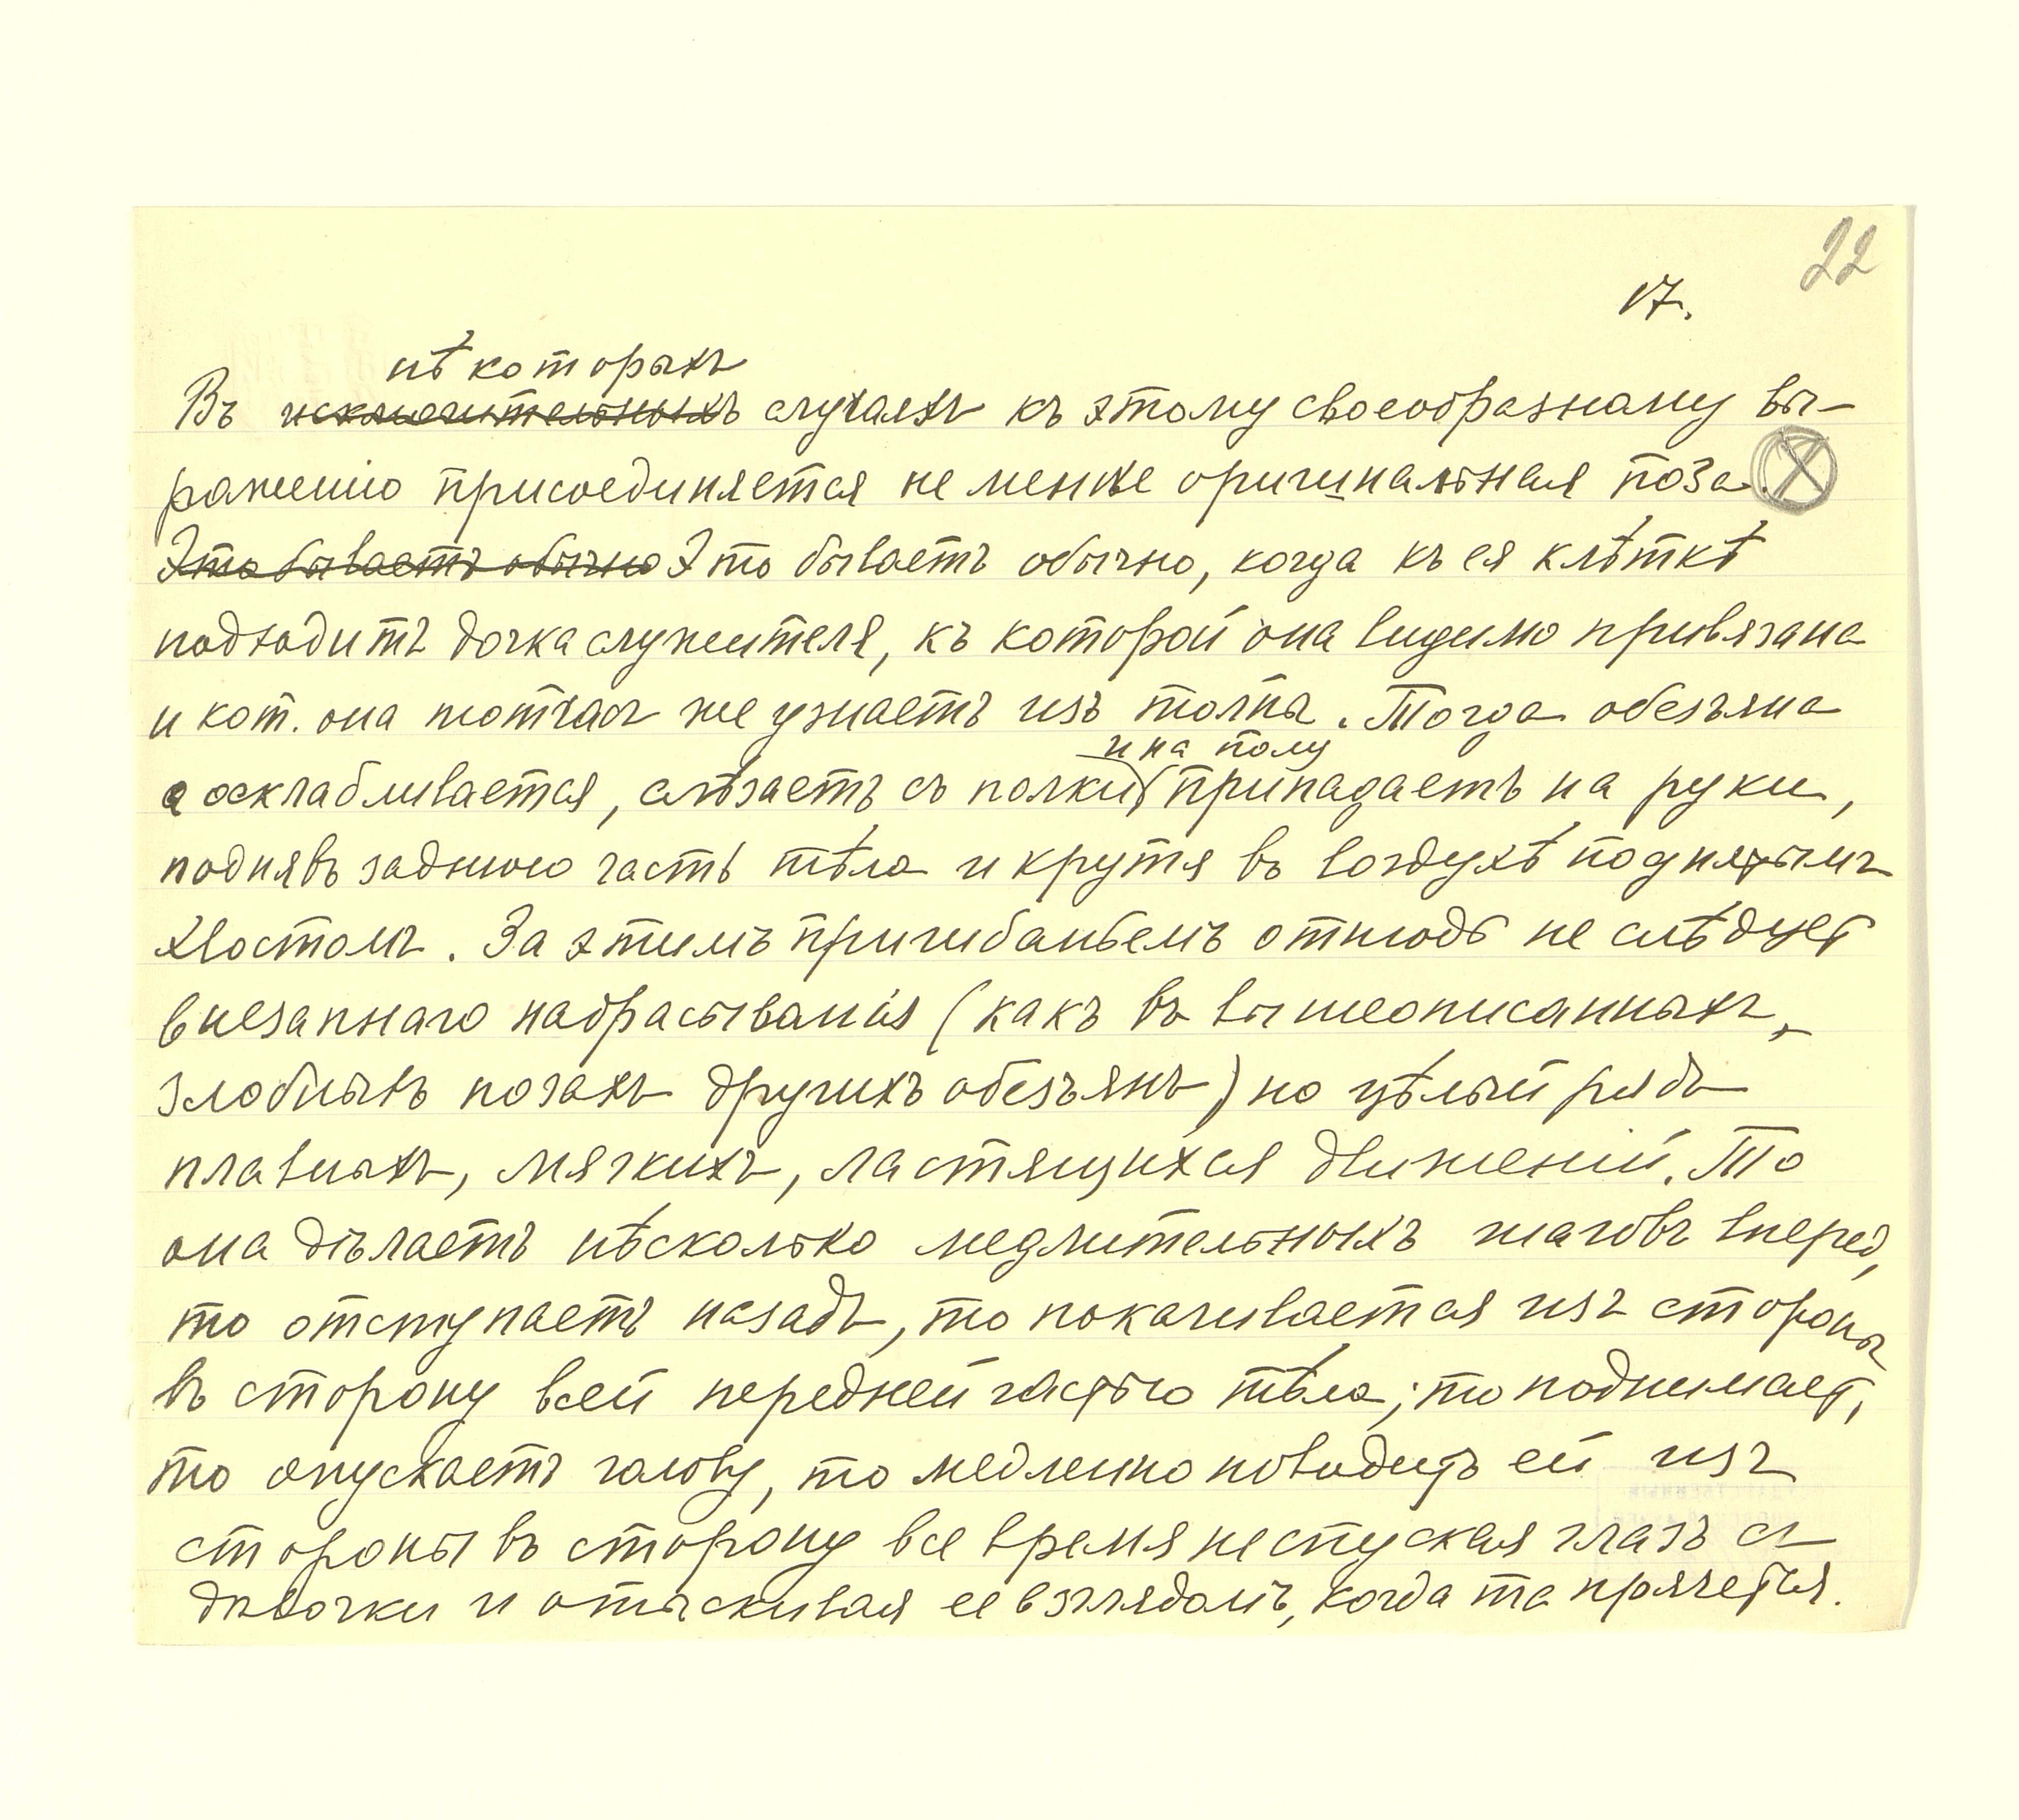 22
17.
нѣкоторыхъ
Въ исключительныхъ случаяхъ къ этому своеобразному вы-
раженію присоединяется не менѣе оригинальная поза.
Это бываетъ обычно Это бываетъ обычно, когда къ ея клѣткѣ
подходитъ дочка служителя, къ которой она видимо привязана
и кот. она тотчасъ же узнаетъ изъ толпы. Тогда обезьяна
осклабливается, слѣзаетъ съ полки
и на полу
припадаетъ на руки,
поднявъ заднюю часть тѣла и крутя въ воздухѣ поднятымъ
хвостомъ. За этимъ пригибаньемъ отнюдь не слѣдует
внезапнаго набрасыванія (какъ въ вышеописанныхъ,
злобныхъ позахъ другихъ обезьянъ) но цѣлый рядъ
плавныхъ, мягкихъ, ластящихся движеній. То
она дѣлаетъ нѣсколько медлительныхъ шаговъ вперед,
то отступаетъ назадъ, то покачивается изъ стороны
въ сторону всей передней частью тѣла; то поднимает,
то опускаетъ голову, то медленно поводитъ ей изъ
стороны въ сторону все время не спуская глазъ съ
дѣвочки и отыскивая ее взглядомъ, когда та прячется.